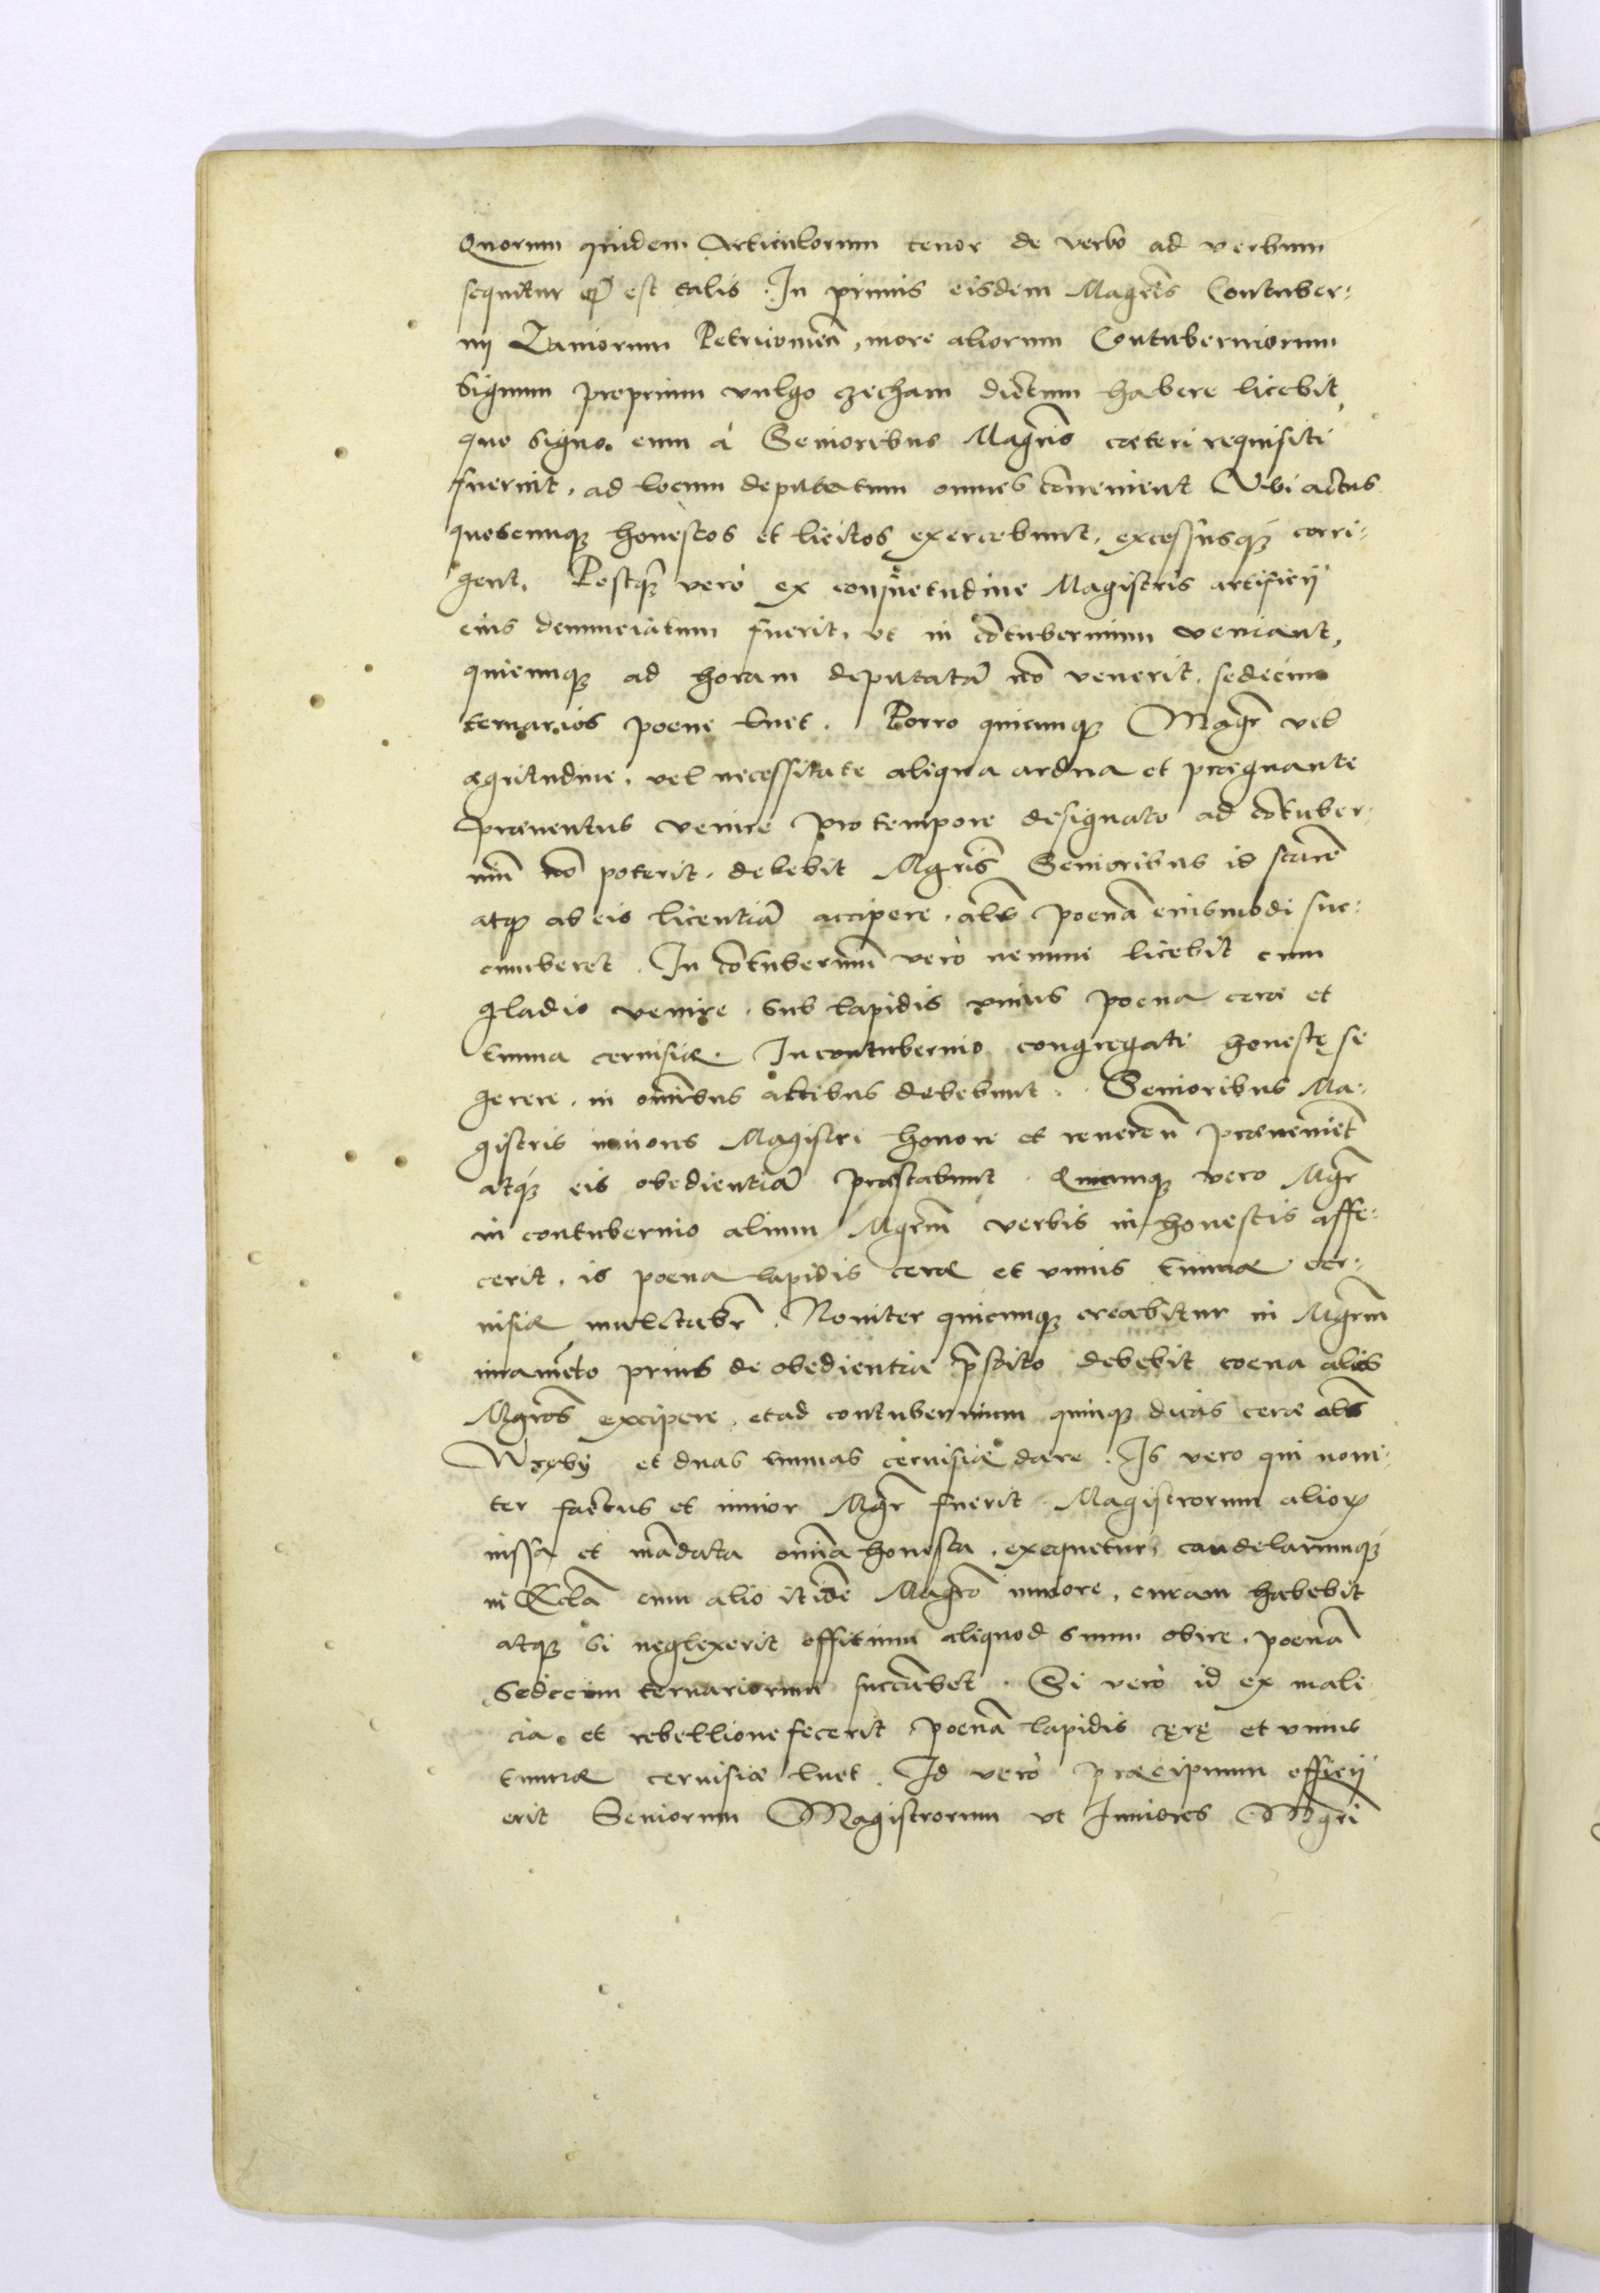 Quorum quidem Articulorum tenor de verbo ad verbum
sequitur et est talis. In primis eisdem Magr̃is Contuber:
nij Laniorum Petricouien̄, more aliorum Contuberniorum
signum proprium vulgo czecham dictum habere licebit
quo signo. cum à Senioribus Magr̃is cæteri requisiti
fuerint, ad locum deputatum omnes cōuenient Vbi actus
quoscunq; honestos et licitos exercebunt, excessusq; corri:
gent. Postq̃ verò ex consuetudine Magistris artificij
eius denunciatum fuerit, vt in cōtubernium veniant,
quicunq; ad horam deputatā nō venerit, sedecim
ternarios poene luet. Porro quicunq; Magr̃ vel
ægritudine, vel necessitate aliqua ardua et prægnante
præuentus venire pro tempore designato ad cōtuber:
niū nō poterit, debebit Mgr̃is Senioribus id
atq; ab eis licentiā accipere, als̄ poenā eiusmodi suc:
cumberet. In cōtuberniū verò nemini licebit cum
gladio venire, sub lapidis vnius poena ceræ et
tunna ceruisiæ. In contubernio congregati honestę se
gerere, in om̄ibus actibus debebunt. Senioribus Ma:
gistris iuniores Magistri honore et reueren̄ præuenient
atq; eis obedientiā præstabunt. Quicunq; vero Mgr̃
in contubernio alium Mgr̃m verbis inhonestis affe:
cerit, is poena lapidis ceræ et vnius tunnæ cer:
uisiæ mulctabr̃. Nouiter quicunq; creabitur in Mgr̃m
iuramēto prius de obedientia p̄stito debebit coena alios
Mgr̃os excipere, et ad contubernium quinq; duas ceræ als̄
Wręby et duas tunnas ceruisiæ dare. Is vero qui noui:
ter factus et iunior Mgr̃ fuerit Magistrorum alior̃
iussa et mādata om̄ia honesta, exequetur, candelarumq;
in Eccl̄ā cum alio itidē Magr̃o iuniore, curam habebit
atq; si neglexerit offitium aliquod suum obire, poenā
Sedecim ternariorum succūbet. Si verò id ex mali
cia, et rebellione fecerit poenā lapidis cęrę et vnius
tunnæ ceruisiæ luet. Id verò præcipuum officij
erit Seniorum Magistrorum vt Iuniores Mgr̃i